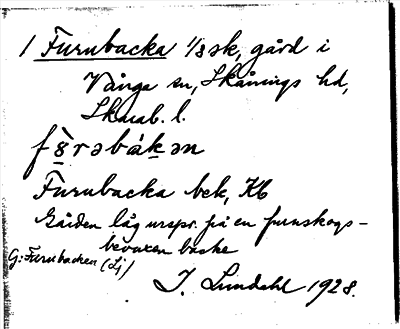 1 Furubacka 1/8 sk, gård i
Vånga sn, Skånings hd,
Skarab. l.
fɤ̀rəbàkən
Furubacka bck, Kb
Gården låg urspr. på en furuskogs-
bevuxen backe
G: Furubacken (Lj)
J. Lundahl 1928.